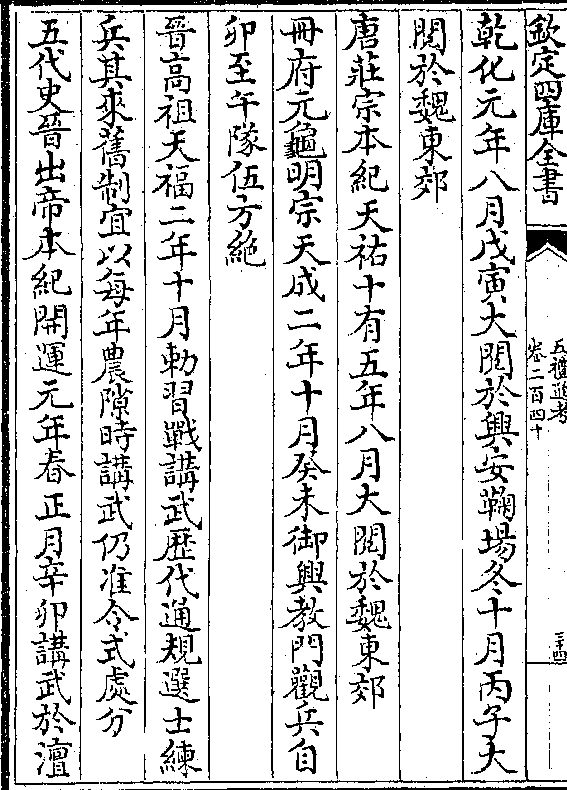 欽定四庫全書
五禮通考
卷二百四十
三十四
乾化元年八月戊寅大閱於興安鞠場冬十月丙子大
閱於魏東郊
唐莊宗本紀天祐十有五年八月大閱於魏東郊
冊府元龜明宗天成二年十月癸未御興教門觀兵自
卯至午隊伍方絶
晉高祖天福二年十月勅習戰講武歴代通規選士練
兵其來舊制宜以每年農隙時講武仍准令式處分
五代史晉出帝本紀開運元年春正月辛卯講武於澶